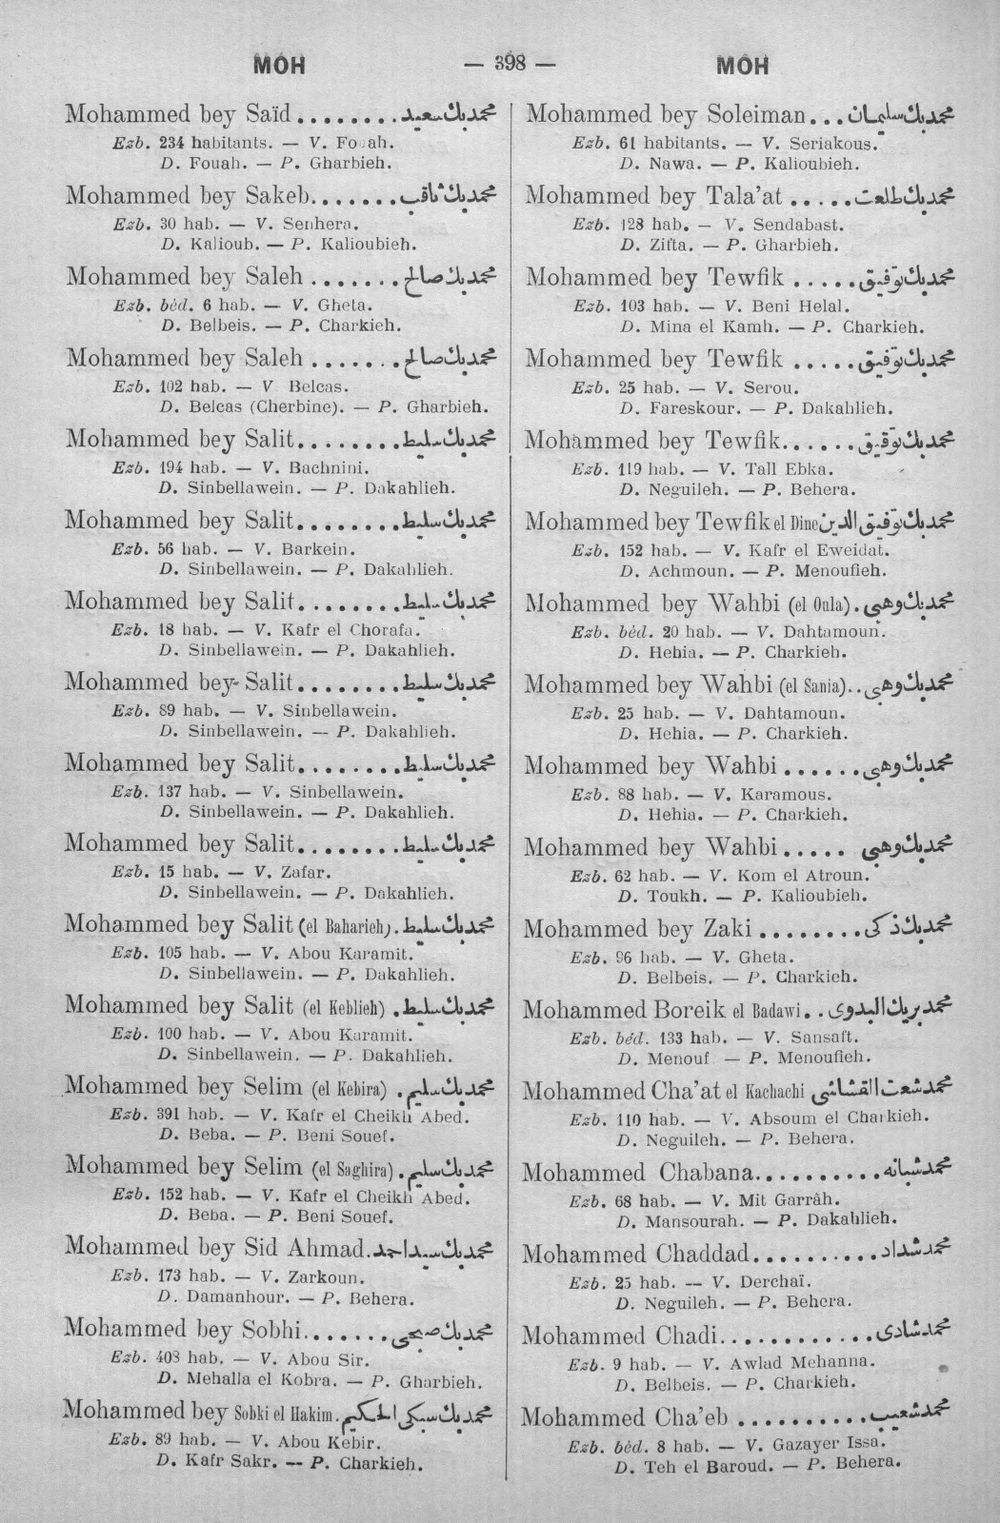 MOH — 398 — MOH
Mohammed bey Saïd ........ محمد بك سعيد
Ezb. 234 habitants. — V. Fouah.
D. Fouah. — P. Gharbieh.
Mohammed bey Sakeb....... محمد بك ثاقب
Ezb. 30 hab. — V. Senhera.
D. Kalioub. — P. Kalioubieh.
Mohammed bey Saleh ....... محمد بك صالح
Ezb. béd. 6 hab. — V. Gheta.
D. Belbeis. — P. Charkieh.
Mohammed bey Saleh ....... محمد بك صالح
Ezb. 102 hab. — V Belcas.
D. Belcas (Cherbine). — P. Gharbieh.
Mohammed bey Salit........ محمد بك سليط
Ezb. 194 hab. — V. Bachnini.
D. Sinbellawein. — P. Dakahlieh.
Mohammed bey Salit........ محمد بك سليط
Ezb. 56 hab. — V. Barkein.
D. Sinbellawein. — P. Dakahlieh.
Mohammed bey Salit........ محمد بك سليط
Ezb. 18 hab. — V. Kafr el Chorafa.
D. Sinbellawein. — P. Dakahlieh.
Mohammed bey Salit........ محمد بك سليط
Ezb. 89 hab. — V. Sinbellawein.
D. Sinbellawein. — P. Dakahlieh.
Mohammed bey Salit........ محمد بك سليط
Ezb. 137 hab. — V. Sinbellawein.
D. Sinbellawein. — P. Dakahlieh.
Mohammed bey Salit........ محمد بك سليط
Ezb. 15 hab. — V. Zafar.
D. Sinbellawein. — P. Dakahlieh.
Mohammed bey Salit (el Baharieh). محمد بك سليط
Ezb. 105 hab. — V. Abou Karamit.
D. Sinbellawein. — P. Dakahlieh.
Mohammed bey Salit (el Keblieh) . محمد بك سليط
Ezb. 100 hab. — V. Abou Karamit.
D. Sinbellawein. — P. Dakahlieh.
Mohammed bey Selim (el Kebira) . محمد بك سليم
Ezb. 391 hab. — V. Kafr el Cheikh Abed.
D. Beba. — P. Beni Souef.
Mohammed bey Selim (el Saghira) . محمد بك سليم
Ezb. 152 hab. — V. Kafr el Cheikh Abed.
D. Beba. — P. Beni Souef.
Mohammed bey Sid Ahmad. محمد بك سيد احمد
Ezb. 173 hab. — V. Zarkoun.
D. Damanhour. — P. Behera.
Mohammed bey Sobhi....... محمد بك صبحى
Ezb. 403 hab. — V. Abou Sir.
D. Mehalla el Kobra. — P. Gharbieh.
Mohammed bey Sobki el Hakim. محمد بك سبكى الحكيم
Ezb. 89 hab. — V. Abou Kebir.
D. Kafr Sakr. — P. Charkieh.
Mohammed bey Soleiman... محمد بك سليمان
Ezb. 61 habitants. — V. Seriakous.
D. Nawa. — P. Kalioubieh.
Mohammed bey Tala'at ..... محمد بك طلعت
Ezb. 128 hab. — V. Sendabast.
D. Zifta. — P. Gharbieh.
Mohammed bey Tewfik ..... محمد بك توفيق
Ezb. 103 hab. — V. Beni Helal.
D. Mina el Kamh. — P. Charkieh.
Mohammed bey Tewfik ..... محمد بك توفيق
Ezb. 25 hab. — V. Serou.
D. Fareskour. — P. Dakahlieh.
Mohammed bey Tewfik...... محمد بك توفيق
Ezb. 119 hab. — V. Tall Ebka.
D. Neguileh. — P. Behera.
Mohammed bey Tewfik el Dine محمد بك توفيق الدين
Ezb. 152 hab. — V. Kafr el Eweidat.
D. Achmoun. — P. Menoufieh.
Mohammed bey Wahbi (el Oula). محمد بك وهبى
Ezb. béd. 20 hab. — V. Dahtamoun.
D. Hehia. — P. Charkieh.
Mohammed bey Wahbi (el Sania).. محمد بك وهبى
Ezb. 25 hab. — V. Dahtamoun.
D. Hehia. — P. Charkieh.
Mohammed bey Wahbi ...... محمد بك وهبى
Ezb. 88 hab. — V. Karamous.
D. Hehia. — P. Charkieh.
Mohammed bey Wahbi ..... محمد بك وهبى
Ezb. 62 hab. — V. Kom el Atroun.
D. Toukh. — P. Kalioubieh.
Mohammed bey Zaki ........ محمد بك ذكى
Ezb. 96 hab. — V. Gheta.
D. Belbeis. — P. Charkieh.
Mohammed Boreik el Badawi. . محمد بريك البدوى
Ezb. béd. 133 hab. — V. Sansaft.
D. Menouf — P. Menoufieh.
Mohammed Cha'at el Kachachi محمد شعت القشاشى
Ezb. 110 hab. — V. Absoum el Charkieh.
D. Neguileh. — P. Behera.
Mohammed Chabana.......... محمد شبانه
Ezb. 68 hab. — V. Mit Garrâh.
D. Mansourah. — P. Dakahlieh.
Mohammed Chaddad.......... محمد شداد
Ezb. 25 hab. — V. Derchaï.
D. Neguileh. — P. Behera.
Mohammed Chadi............ محمد شادى
Ezb. 9 hab. — V. Awlad Mehanna.
D. Belbeis. — P. Charkieh.
Mohammed Cha'eb .......... محمد شعيب
Ezb. béd. 8 hab. — V. Gazayer Issa.
D. Teh el Baroud. — P. Behera.